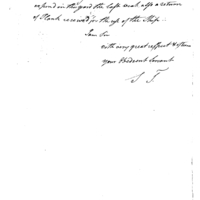 expend in the yard the last week also a return
of Plank received for the use of the Ship.
I am Sir
with very great respect & esteem
your Obedient Servant
S T